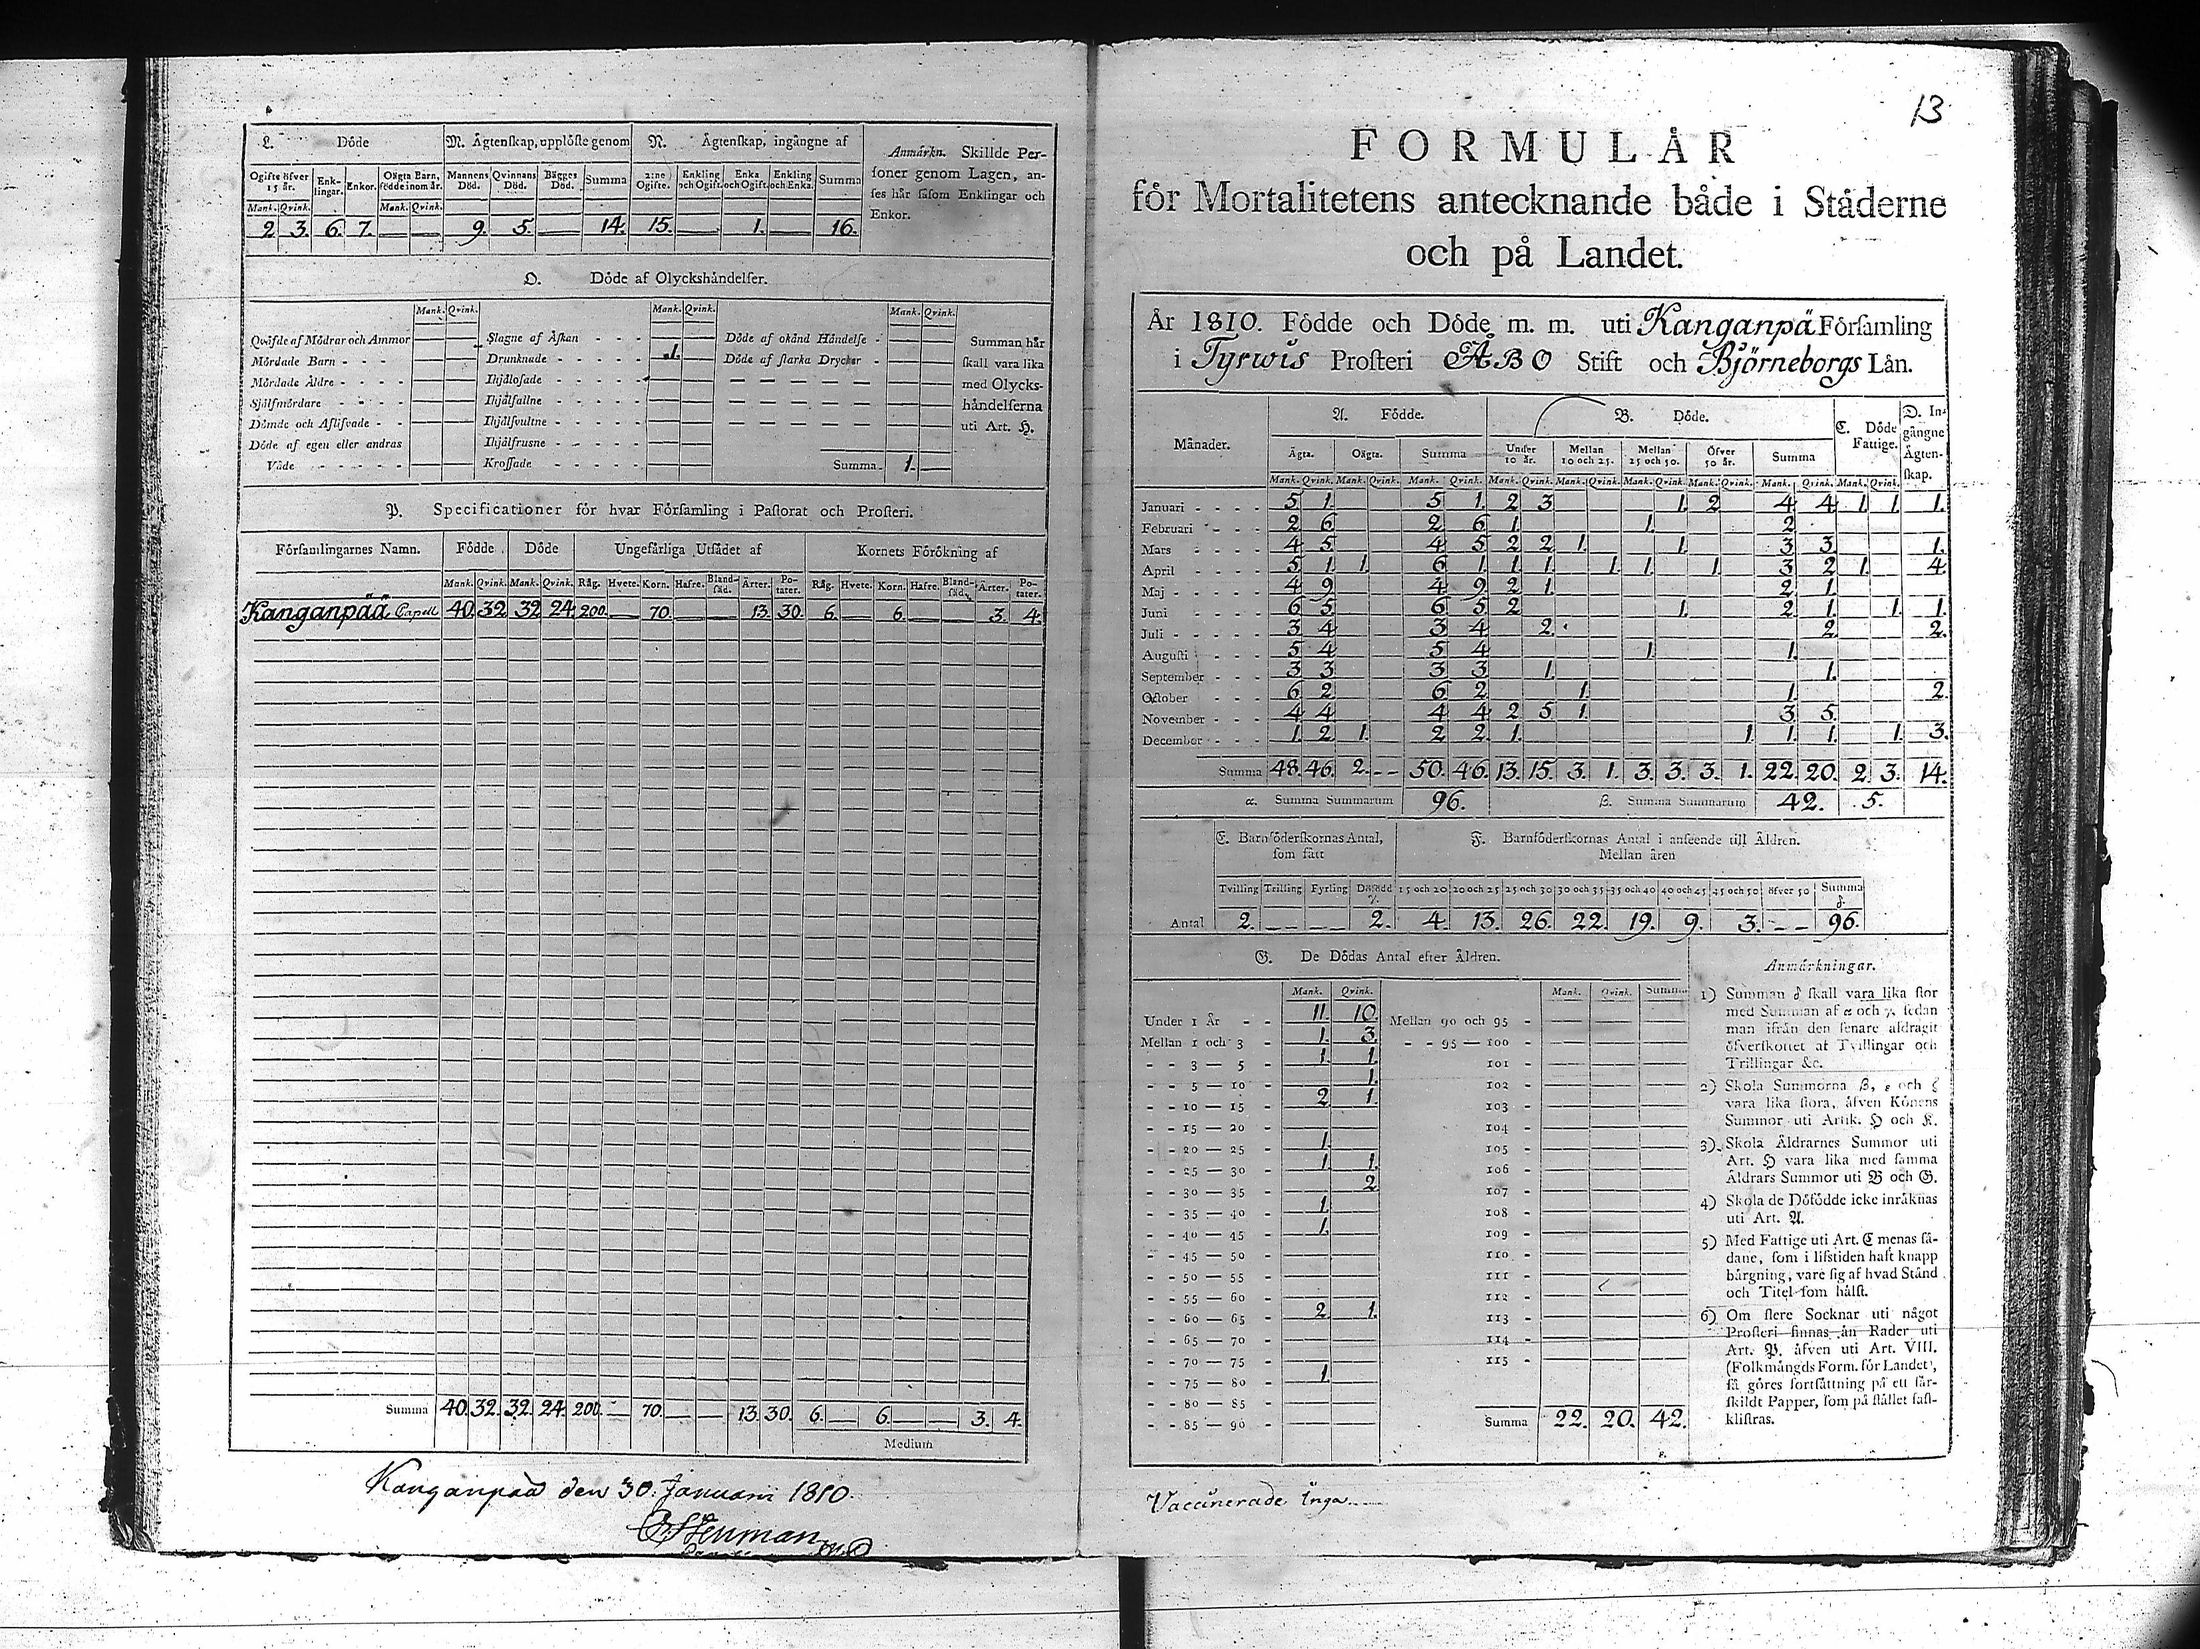 L. Döde
M. Ägtenskap, upplöste genom
N. Ägtenskap, ingångne af
Anmärkn. Skillde Per-
soner genom Lagen, an-
ses här såsom Enklingar och
Enkor.
Ogifte öfver 15 år. Enk-lingar. Enkor. Oägta Barn, födde inom år. Mannens Död. Qvinnans Död. Bägges Död. Summa 2:ne Ogifte. Enkling och Ogift. Enka och Ogift. Enkling och Enka. Summa
Mank. Qvink. Mank. Qvink.
2 3. 6. 7. — — 9. 5. — 14. 15. — 1. — 16.
O. Döde af Olyckshändelser.
Mank. Qvink. Mank. Qvink. Mank. Qvink.
Qväfde af Mödrar och Ammor Slagne af Åskan - - - Döde af okänd Händelse - Summan här
Mördade Barn - - Drunknade - - - - - 1. Döde af starka Drycker - skall vara lika
Mördade Äldre - - - - Ihjälosade - - - - - med Olycks-
Självmördare - - - - Ihjälfallne - - - - händelserna
Dömde och Aflifvade - - Ihjälsvultne - - - - uti Art. H.
Döde af egen eller andras Ihjälfrusne - - - -
Våde - - - - - Krossade - - - - Summa. 1. —
P. Specificationer för hvar Församling i Pastorat och Prosteri.
Församlingarnes Namn. Födde Döde Ungefärliga Utsädet af Kornets Förökning af
Mank. Qvink. Mank. Qvink. Råg. Hvete. Korn. Hafre. Bland-säd. Ärter. Po-tater. Råg. Hvete. Korn. Hafre Bland-säd. Ärter. Po-tater.
Kanganpää Capell 40. 32 32 24. 200. — 70. — — 13. 30. 6. — 6. — — 3. 4.
Summa 40. 32. 32. 24. 200. — 70. — — 13. 30. 6. — 6. — — 3. 4.
Medium
Kanganpää den 30. Januarii 1810.
13
FORMULÄR
för Mortalitetens antecknande både i Städerne
och på Landet.
År 1810. Födde och Döde m. m. uti Kanganpä Församling
i Tyrwis Prosteri ÅBO Stift och Björneborgs Län.
Månader. A. Födde. B. Döde. C. Döde Fattige. D. In-gångne Ägten-skap.
Ägta. Oägta. Summa Under 10 år. Mellan 10 och 25. Mellan 25 och 50. Öfver 50 år. Summa
Mank. Qvink. Mank. Qvink. Mank. Qvink. Mank. Qvink. Mank. Qvink. Mank. Qvink. Mank. Qvink. Mank. Qvink. Mank. Qvink.
Januari - - - - 5 1. 5 1. 2 3 1. 2 4 4 1. 1. 1.
Februari - - - 2 6 2 6 1. 1. 2
Mars - - - - 4 5 4 5 2 2 1. 1. 3 3 1.
April - - - - 5 1. 1. 6 1. 1. 1. 1. 1. 1. 3 2 1. 4.
Maj - - - - 4 9 4 9 2 1. 2 1.
Juni - - - - 6 5 6 5 2 1. 2 1. 1. 1.
Juli - - - - 3 4 3 4 2. 2. 2.
Augusti - - - 5 4 5 4 1. 1.
September - - - 3 3 3 3 1. 1.
October - - - 6 2 6 2 1. 1. 2
November - - - 4 4 4 4 2 5 1. 3 5
December - - - 1. 2 1. 2 2 1. 1. 1. 1. 1. 3.
Summa 48. 46. 2. - - 50. 46. 13. 15. 3. 1. 3. 3. 3. 1. 22. 20. 2. 3. 14.
α. Summa Summarum 96. β. Summa Summarum 42. 5.
E. Barnföderskornas Antal, som fått
F. Barnföderskornas Antal i anseende till Åldren.
Mellan åren
Tvilling Trilling Fyrling Dödfödd γ. 15 och 20 20 och 25 25 och 30 30 och 35 35 och 40 40 och 45 45 och 50 öfver 50 Summa δ
Antal 2. - - - - 2. 4. 13. 26. 22. 19. 9. 3. - - 96.
G. De Dödas Antal efter Åldren.
Mank. Qvink. Mank. Qvink. Summa
Under 1 År - - 11. 10. Mellan 90 och 95 -
Mellan 1 och 3 - 1. 3. - - 95 — 100 -
- - 3 — 5 - 1. 1. 101 -
- - 5 — 10 - 1. 102 -
- - 10 — 15 - 2 1. 103 -
- - 15 — 20 - 104 -
- - 20 — 25 - 1. 105 -
- - 25 — 30 - 1. 1. 106 -
- - 30 — 35 - 2 107 -
- - 35 — 40 - 1. 108 -
- - 40 — 45 - 1. 109 -
- - 45 — 50 - 110 -
- - 50 — 55 - 111 -
- - 55 — 60 - 112 -
- - 60 — 65 - 2 1. 113 -
- - 65 — 70 - 114 -
- - 70 — 75 - 115 -
- - 75 — 80 - 1.
- - 80 — 85 -
- - 85 — 90 - Summa 22. 20. 42.
Anmärkningar.
1) Summan δ skall vara lika stor
med Summan af α och γ, sedan
man ifrån den senare afdragit
öfverskottet af Tvillingar och
Trillingar &c.
2) Skola Summorna β, ε och ζ
vara lika stora, äfven Könens
Summor uti Artik. H och K.
3) Skola Åldrarnes Summor uti
Art. H vara lika med samma
Åldrars Summor uti B och G.
4) Skola de Dödfödde icke inräknas
uti Art. A.
5) Med Fattige uti Art. C menas så-
dane, som i lifstiden haft knapp
bärgning, vare sig af hvad Stånd
och Titel som hälst.
6) Om flere Socknar uti något
Prosteri finnas än Rader uti
Art. P. äfven uti Art. VIII.
(Folkmängds Form. för Landet),
så göres fortsättning på ett sär-
skildt Papper, som på stället fast-
klistras.
Vaccinerade inga